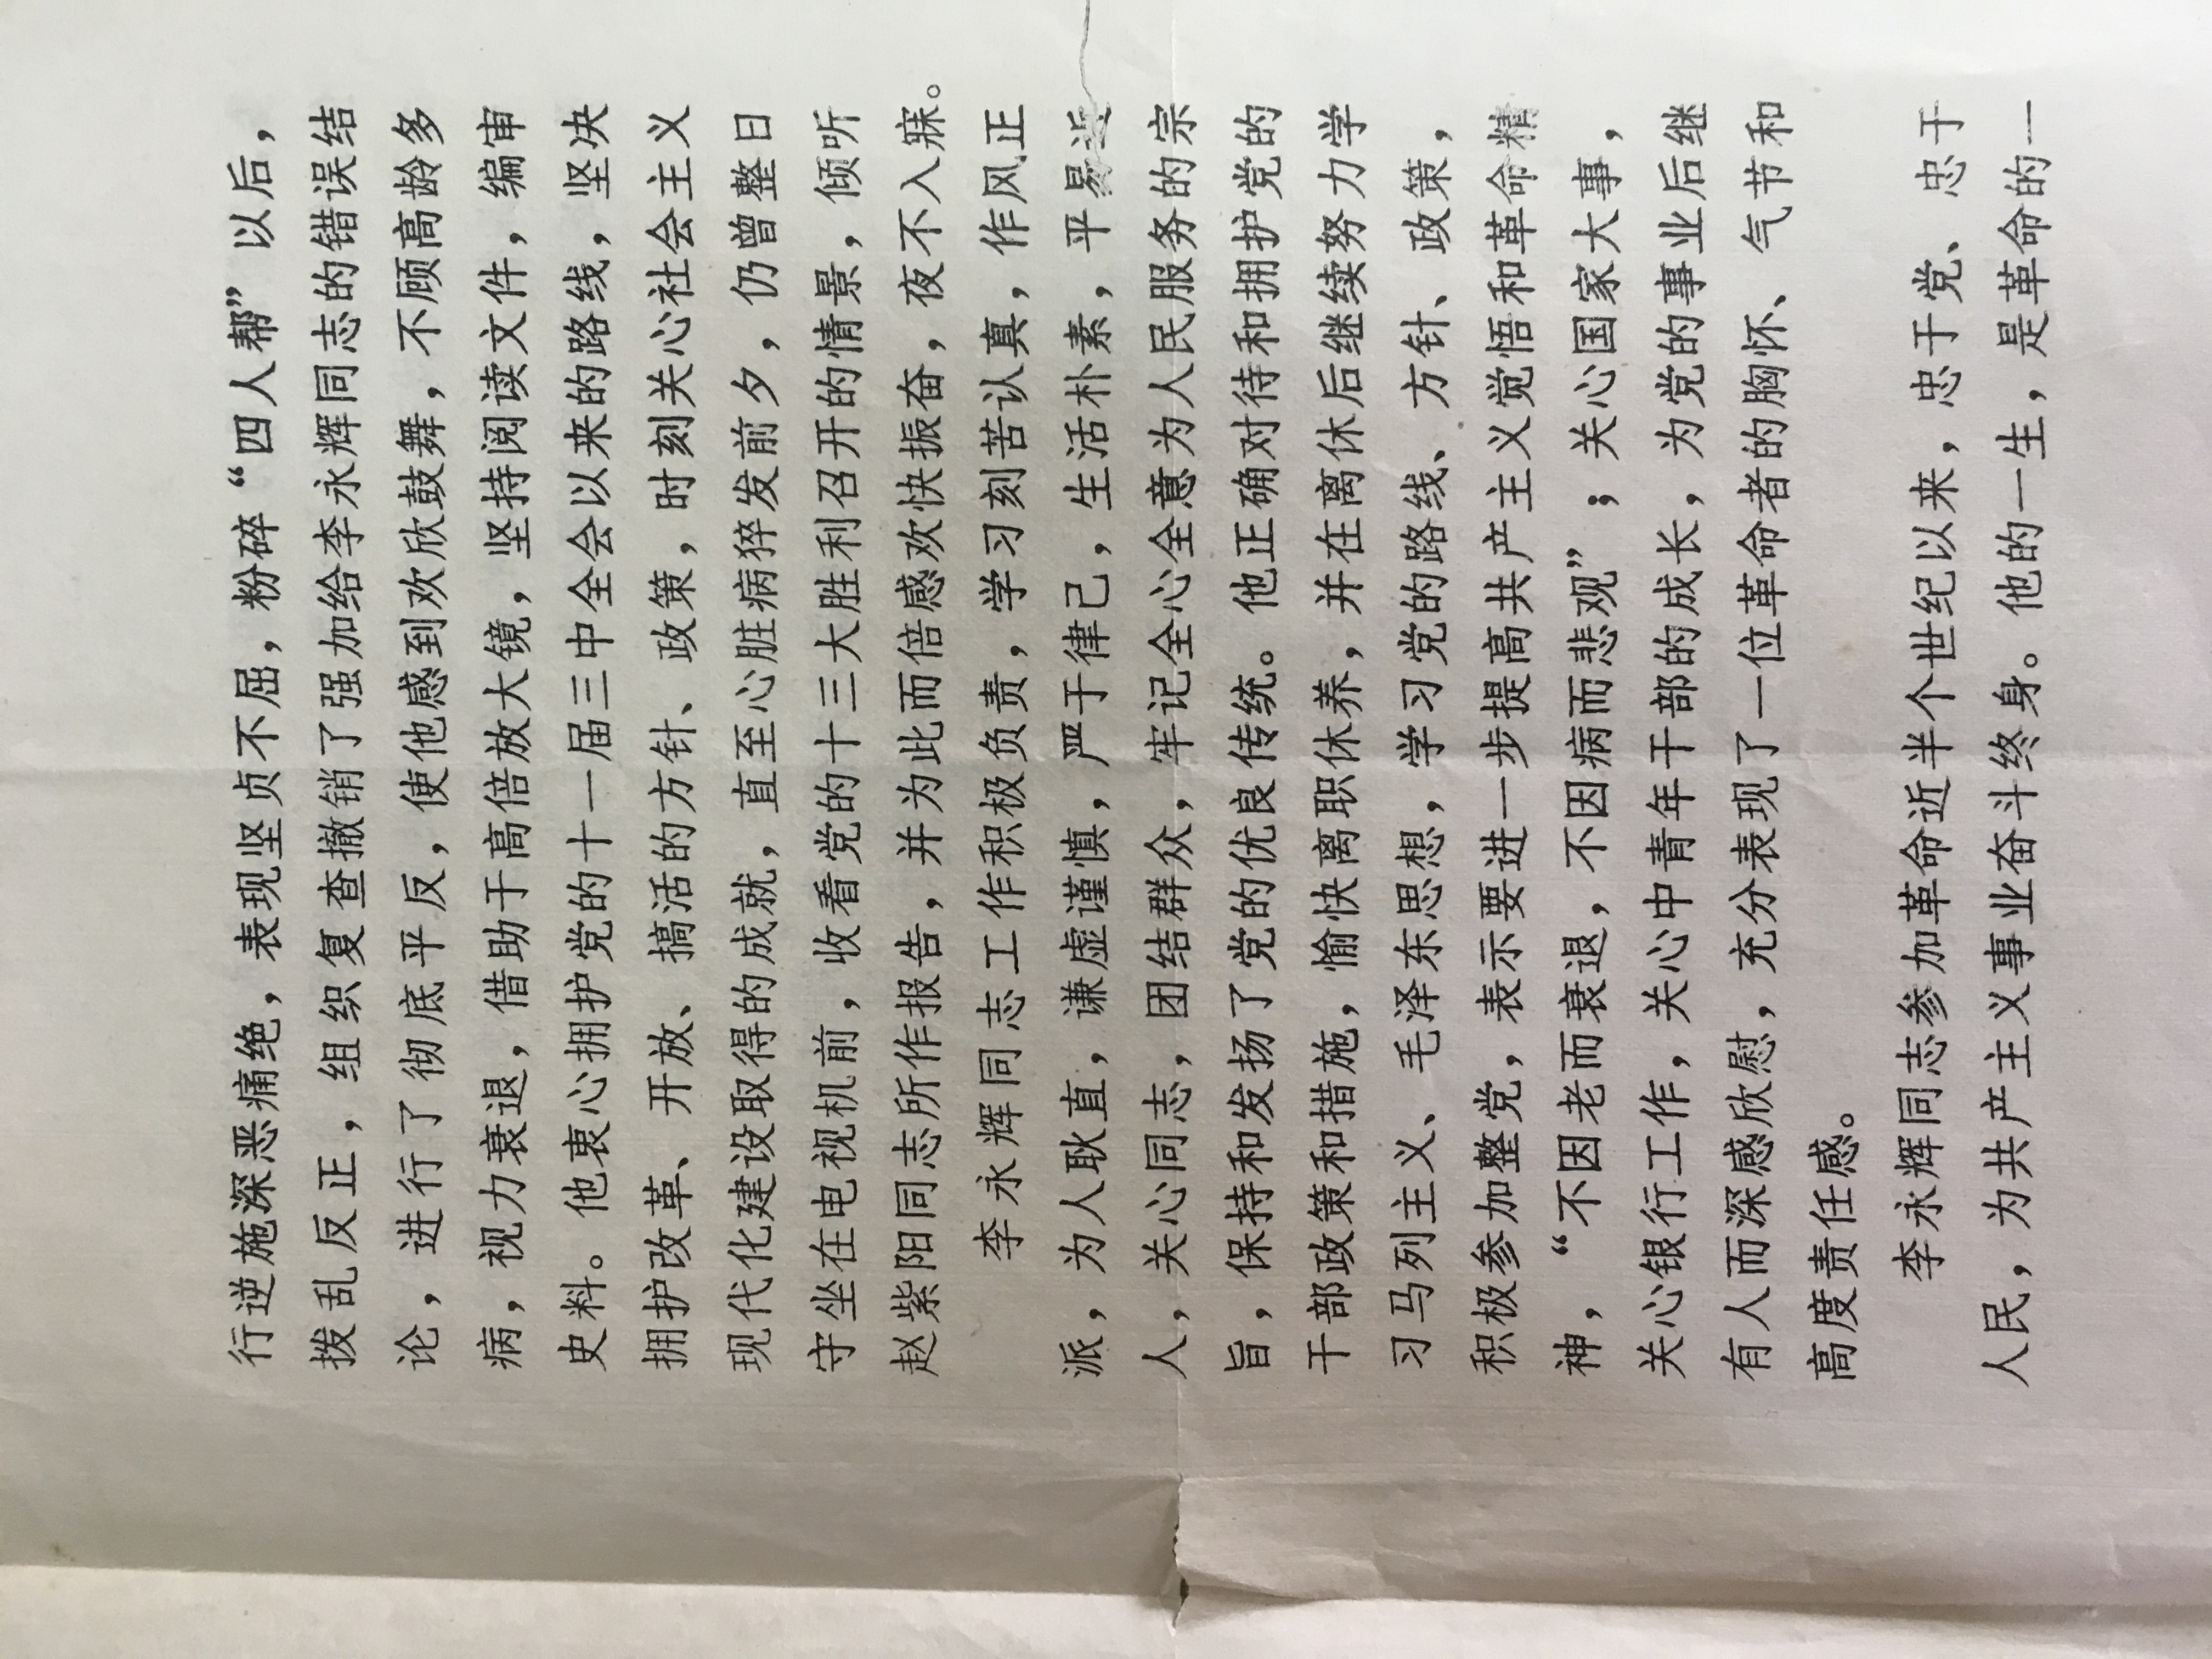 行逆施深恶痛绝，表现坚贞不屈，粉碎“四人帮”以后，
拨乱反正，组织复查撤销了强加给李永辉同志的错误结
论，进行了彻底平反，使他感到欢欣鼓舞，不顾高龄多
病，视力衰退，借助于高倍放大镜，坚持阅读文件，编审
史料。他衷心拥护党的十一届三中全会以来的路线，坚决
拥护改革、开放、搞活的方针、政策，时刻关心社会主义
现代化建设取得的成就，直至心脏病猝发前夕，仍曾整日
守坐在电视机前，收看党的十三大胜利召开的情景，倾听
赵紫阳同志所作报告，并为此而倍感欢快振奋，夜不入寐。
李永辉同志工作积极负责，学习刻苦认真，作风正
派，为人耿直，谦虚谨慎，严于律己，生活朴素，平易近
人，关心同志，团结群众，牢记全心全意为人民服务的宗
旨，保持和发扬了党的优良传统。他正确对待和拥护党的
干部政策和措施，愉快离职休养，并在离休后继续努力学
习马列主义、毛泽东思想，学习党的路线、方针、政策，
积极参加整党，表示要进一步提高共产主义觉悟和革命精
神，“不因老而衰退，不因病而悲观”；关心国家大事，
关心银行工作，关心中青年干部的成长，为党的事业后继
有人而深感欣慰，充分表现了一位革命者的胸怀、气节和
高度责任感。
李永辉同志参加革命近半个世纪以来，忠于党、忠于
人民，为共产主义事业奋斗终身。他的一生，是革命的一